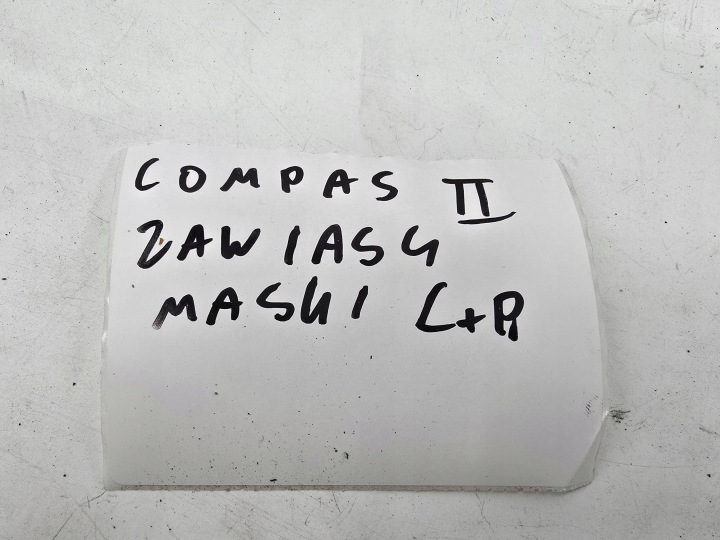 COMPAS II
ZAWIASY
MASKI L+P